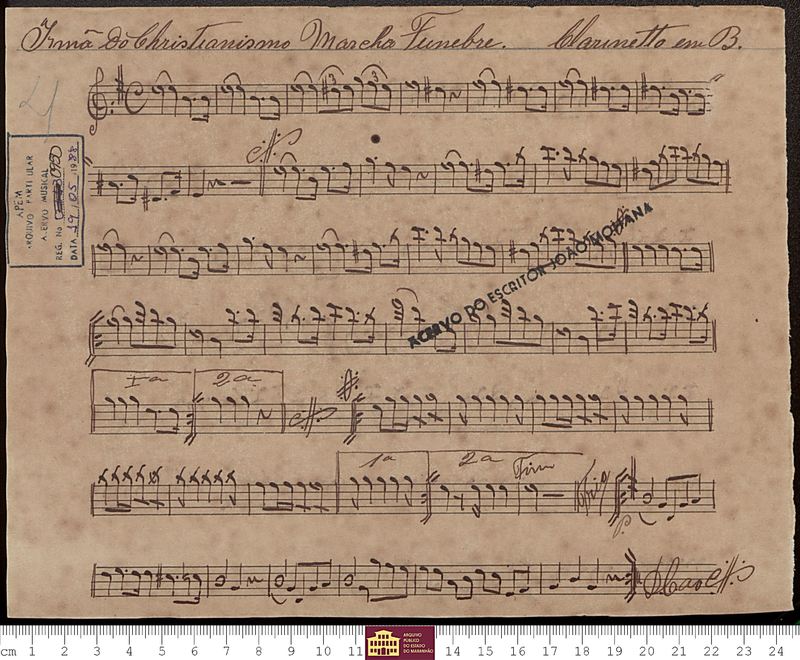 Irmã Do Christianismo Marcha Funebre. Clarinetto em B.
3 3
APEM
ARQUIVO PARTICULAR
ACERVO MUSICAL
REG. No 3090
DATA 19.05.1988
ACERVO DO ESCRITOR JOÃO MOHANA
1a 2a
1a 2a Fim Trio
P.
D Cao
cm 1 2 3 4 5 6 7 8 9 10 11 14 15 16 17 18 19 20 21 22 23 24
ARQUIVO
PÚBLICO
DO ESTADO
DO MARANHÃO